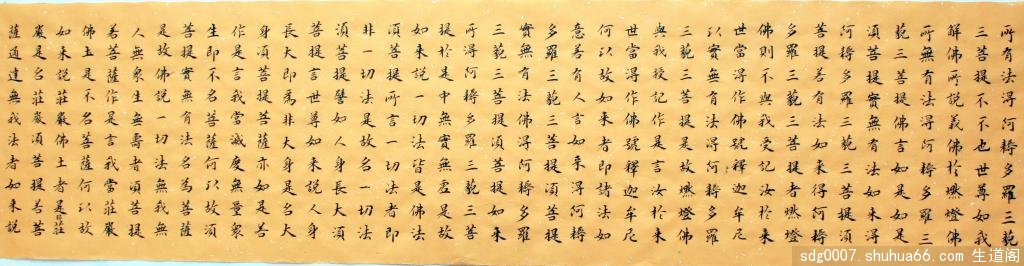 所有法得阿耨多羅三藐
三菩提不不也世尊如我
解佛所說義佛於燃燈佛
所無有法得阿耨多羅三
藐三菩提佛言如是如是
須菩提實無有法如來得
阿耨多羅三藐三菩提須
菩提若有法如來得阿耨
多羅三藐三菩提者燃燈
佛則不與我受記汝於來
世當得作佛號釋迦牟尼
以實無有法得阿耨多羅
三藐三菩提是故燃燈佛
與我授記作是言汝於來
世當得作佛號釋迦牟尼
何以故如來者即諸法如
意若有人言如來得阿耨
多羅三藐三菩提須菩提
實無有法佛得阿耨多羅
三藐三菩提須菩提如來
所得阿耨多羅三藐三菩
提於是中無實無虛是故
如來說一切法皆是佛法
須菩提所言一切法者即
非一切法是故名一切法
須菩提譬如人身長大須
菩提言世尊如來說人身
長大即為非大身是名大
身須菩提菩薩亦如是若
作是言我當滅度無量眾
生即不名菩薩何以故須
菩提實無有法名為菩薩
是故佛說一切法無我無
人無眾生無壽者須菩提
若菩薩作是言我當莊嚴
佛土是不名菩薩何以故
如來說莊嚴佛土者莊
嚴是名莊嚴須菩提若菩
薩通達無我法者如來說
sdg0007.shuhua66.com 生道阁